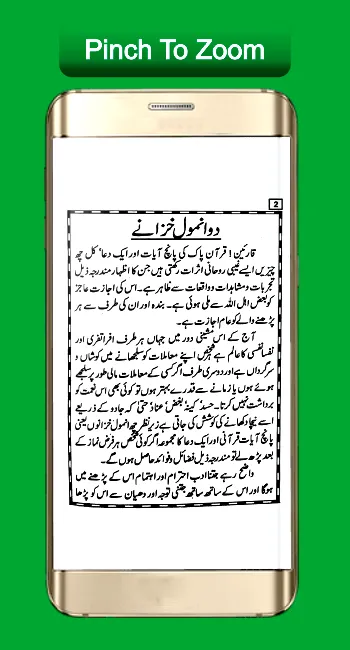 Pinch To Zoom
2
دو انمول خزانے
قارئین! قرآن پاک کی پانچ آیات اور ایک دعا‘ کل چھ
چیزیں ایسے غیبی روحانی اثرات رکھتی ہیں جن کا اظہار مندرجہ ذیل
تجربات و مشاہدات و واقعات سے ظاہر ہے۔ اس کی اجازت عاجز
کو بعض اہل اللہ سے ملی ہوئی ہے۔ بندہ اور ان کی طرف سے ہر
پڑھنے والے کو عام اجازت ہے۔
آج کے اس مشینی دور میں جہاں ہر طرف افراتفری اور
نفسانفسی کا عالم ہے ہر شخص اپنے معاملات کو سلجھانے میں کوشاں و
سرگرداں ہے اور دوسری طرف اگر کسی کے معاملات مالی طور پر سلجھے
ہوئے ہوں یا زمانے سے قدرے بہتر ہوں تو کوئی بھی اس نعمت کو
برداشت نہیں کرتا۔ حسد‘ کینہ‘ بغض‘ عناد حتیٰ کہ جادو کے ذریعے
اسے نیچا دکھانے کی کوشش کی جاتی ہے زیر نظر چھ انمول خزانوں یعنی
پانچ آیات قرآنی اور ایک دعا کا مجموعہ اگر کوئی شخص ہر فرض نماز کے
بعد پڑھ لے تو مندرجہ ذیل فضائل و فوائد حاصل ہوں گے۔
واضح رہے جتنا ادب احترام اور اہتمام اس کے پڑھنے میں
ہوگا اور اس کے ساتھ ساتھ جتنی توجہ اور دھیان سے اس کو پڑھا